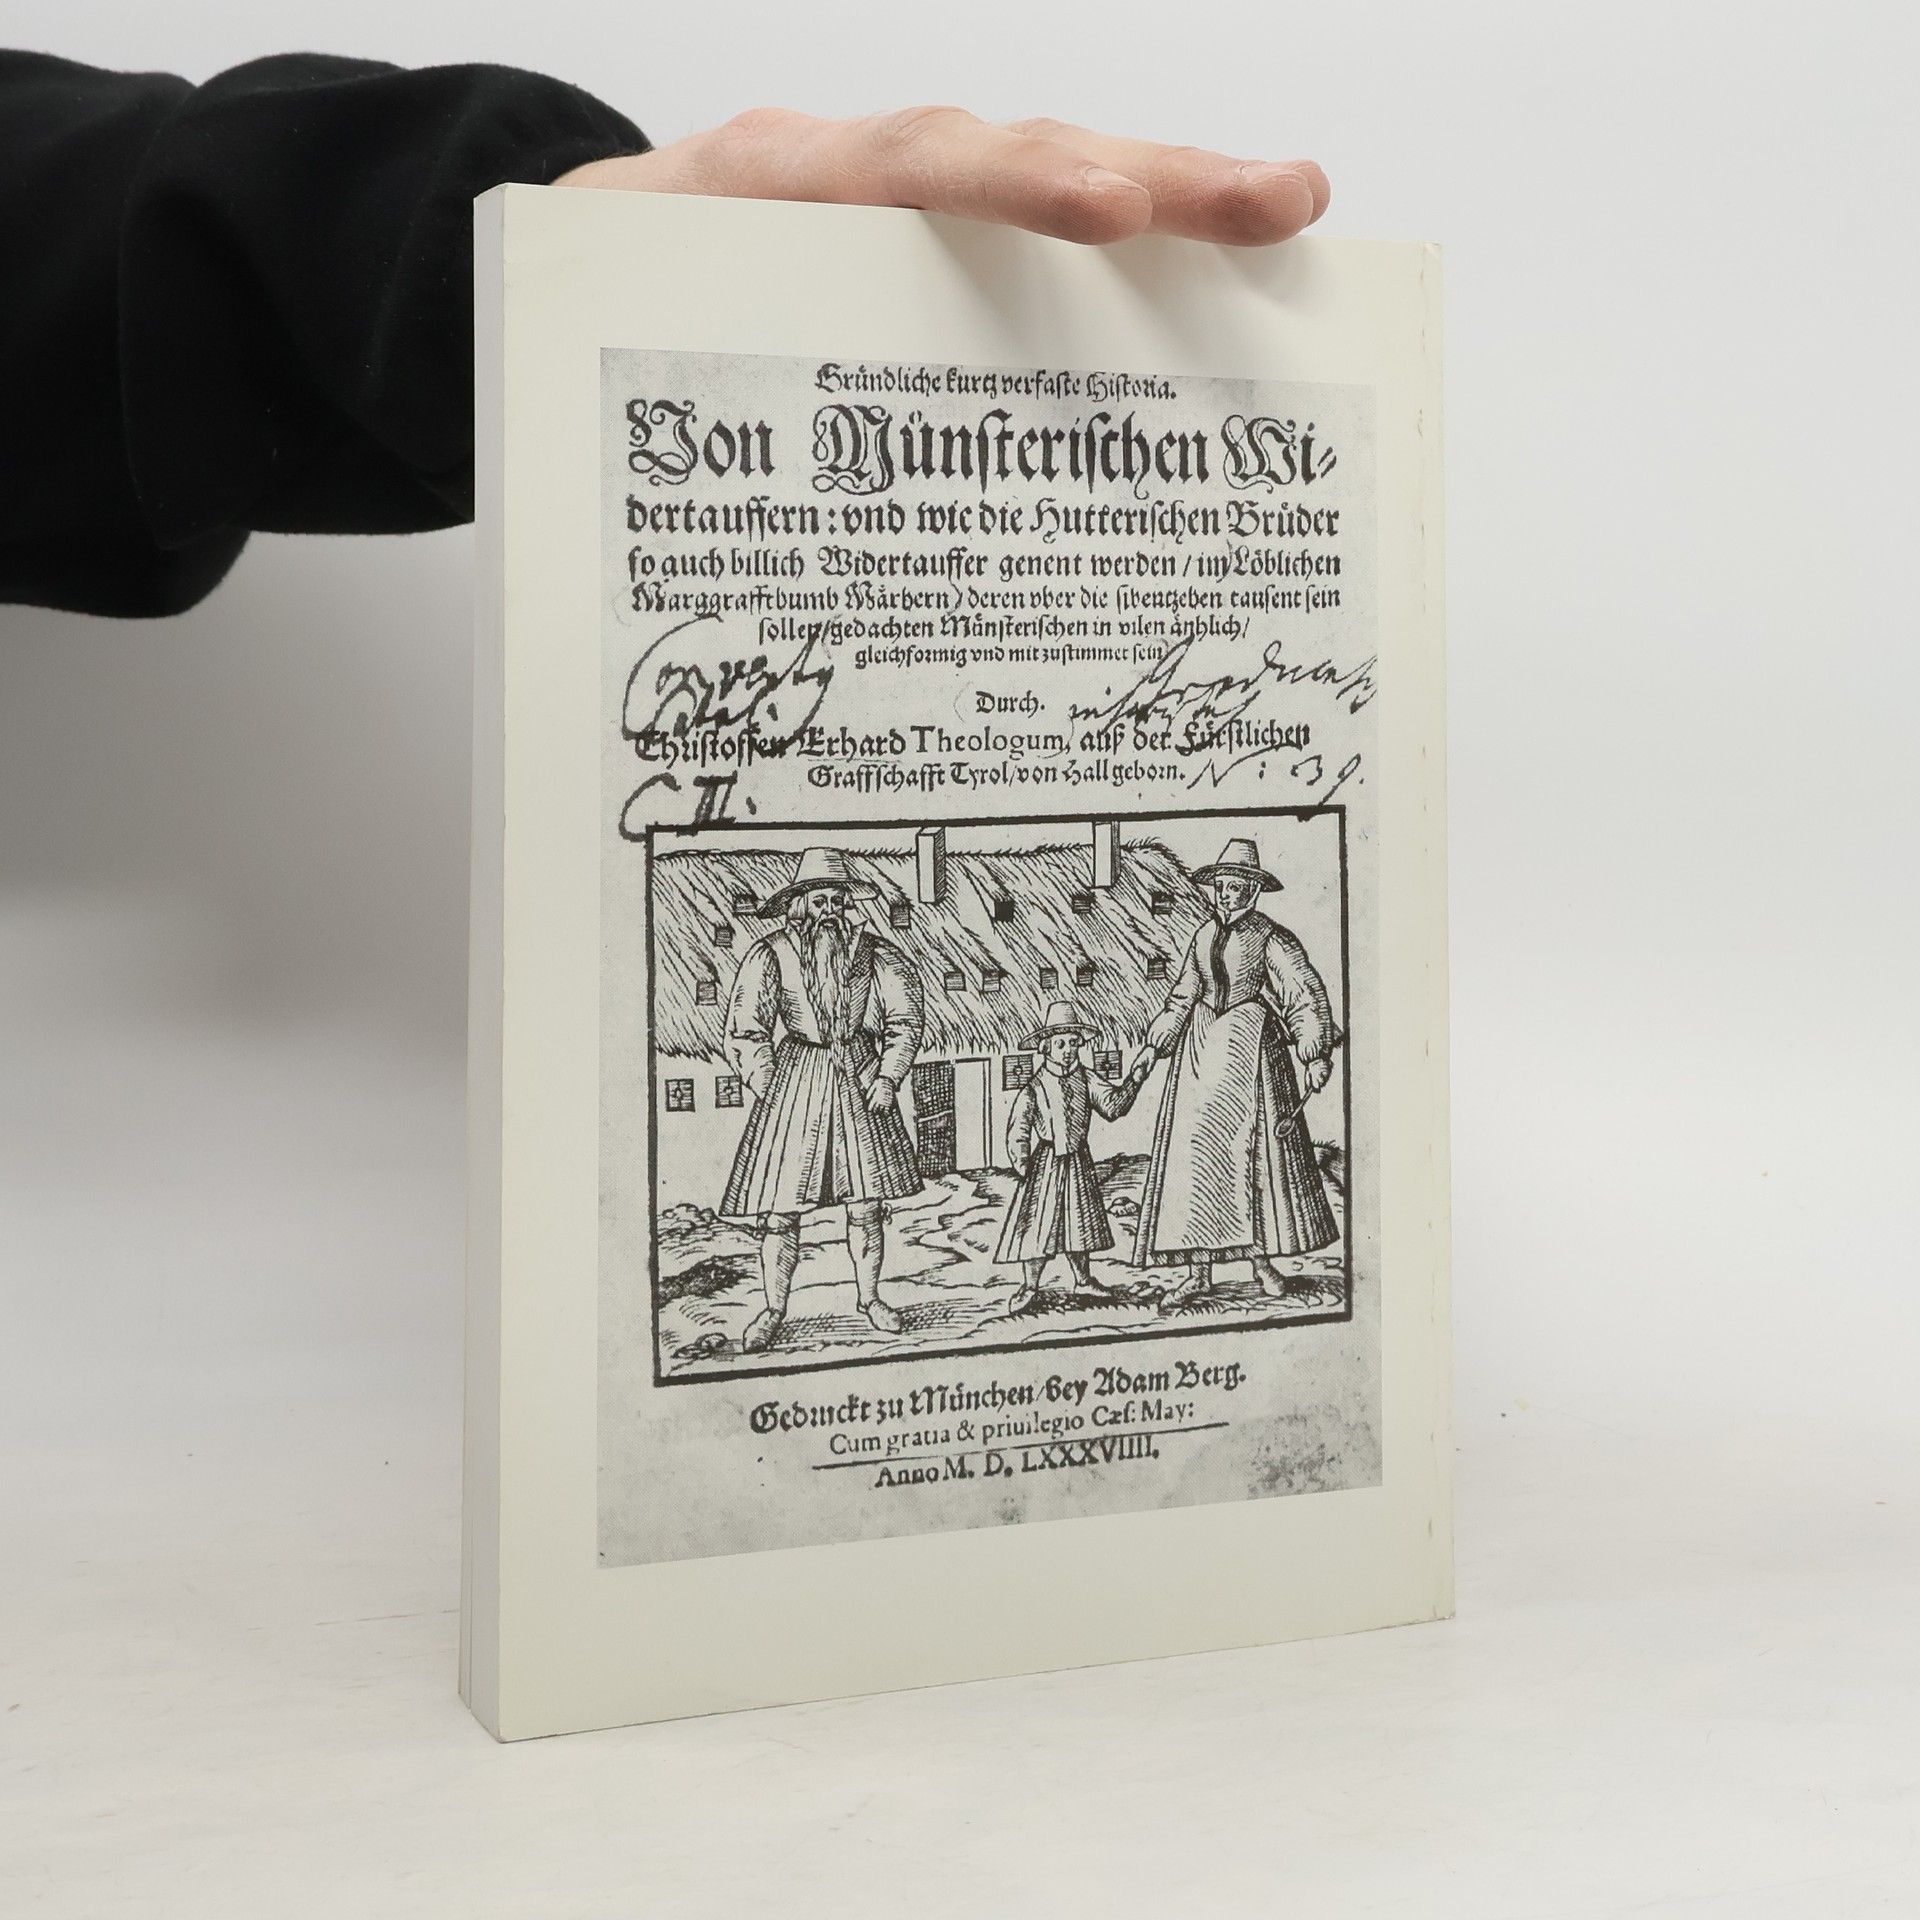 Gründliche kurtz verfaste Historia.
Von Münsterischen Wi-
dertauffern: vnd wie die Hutterischen Brüder
so auch billich Widertauffer genent werden / im Löblichen
Marggraffthumb Märhern / deren vber die sibentzehen tausent sein
sollen / gedachten Münsterischen in vilen änhlich /
gleichformig vnd mit zustimmet sein
Durch.
Christoffen Erhard Theologum, auß der Fürstlichen
Graffschafft Tyrol / von Hall geborn. N: 39.
C II.
Gedruckt zu München / bey Adam Berg.
Cum gratia & priuilegio Cæs: May:
Anno M. D. LXXXVIIII.